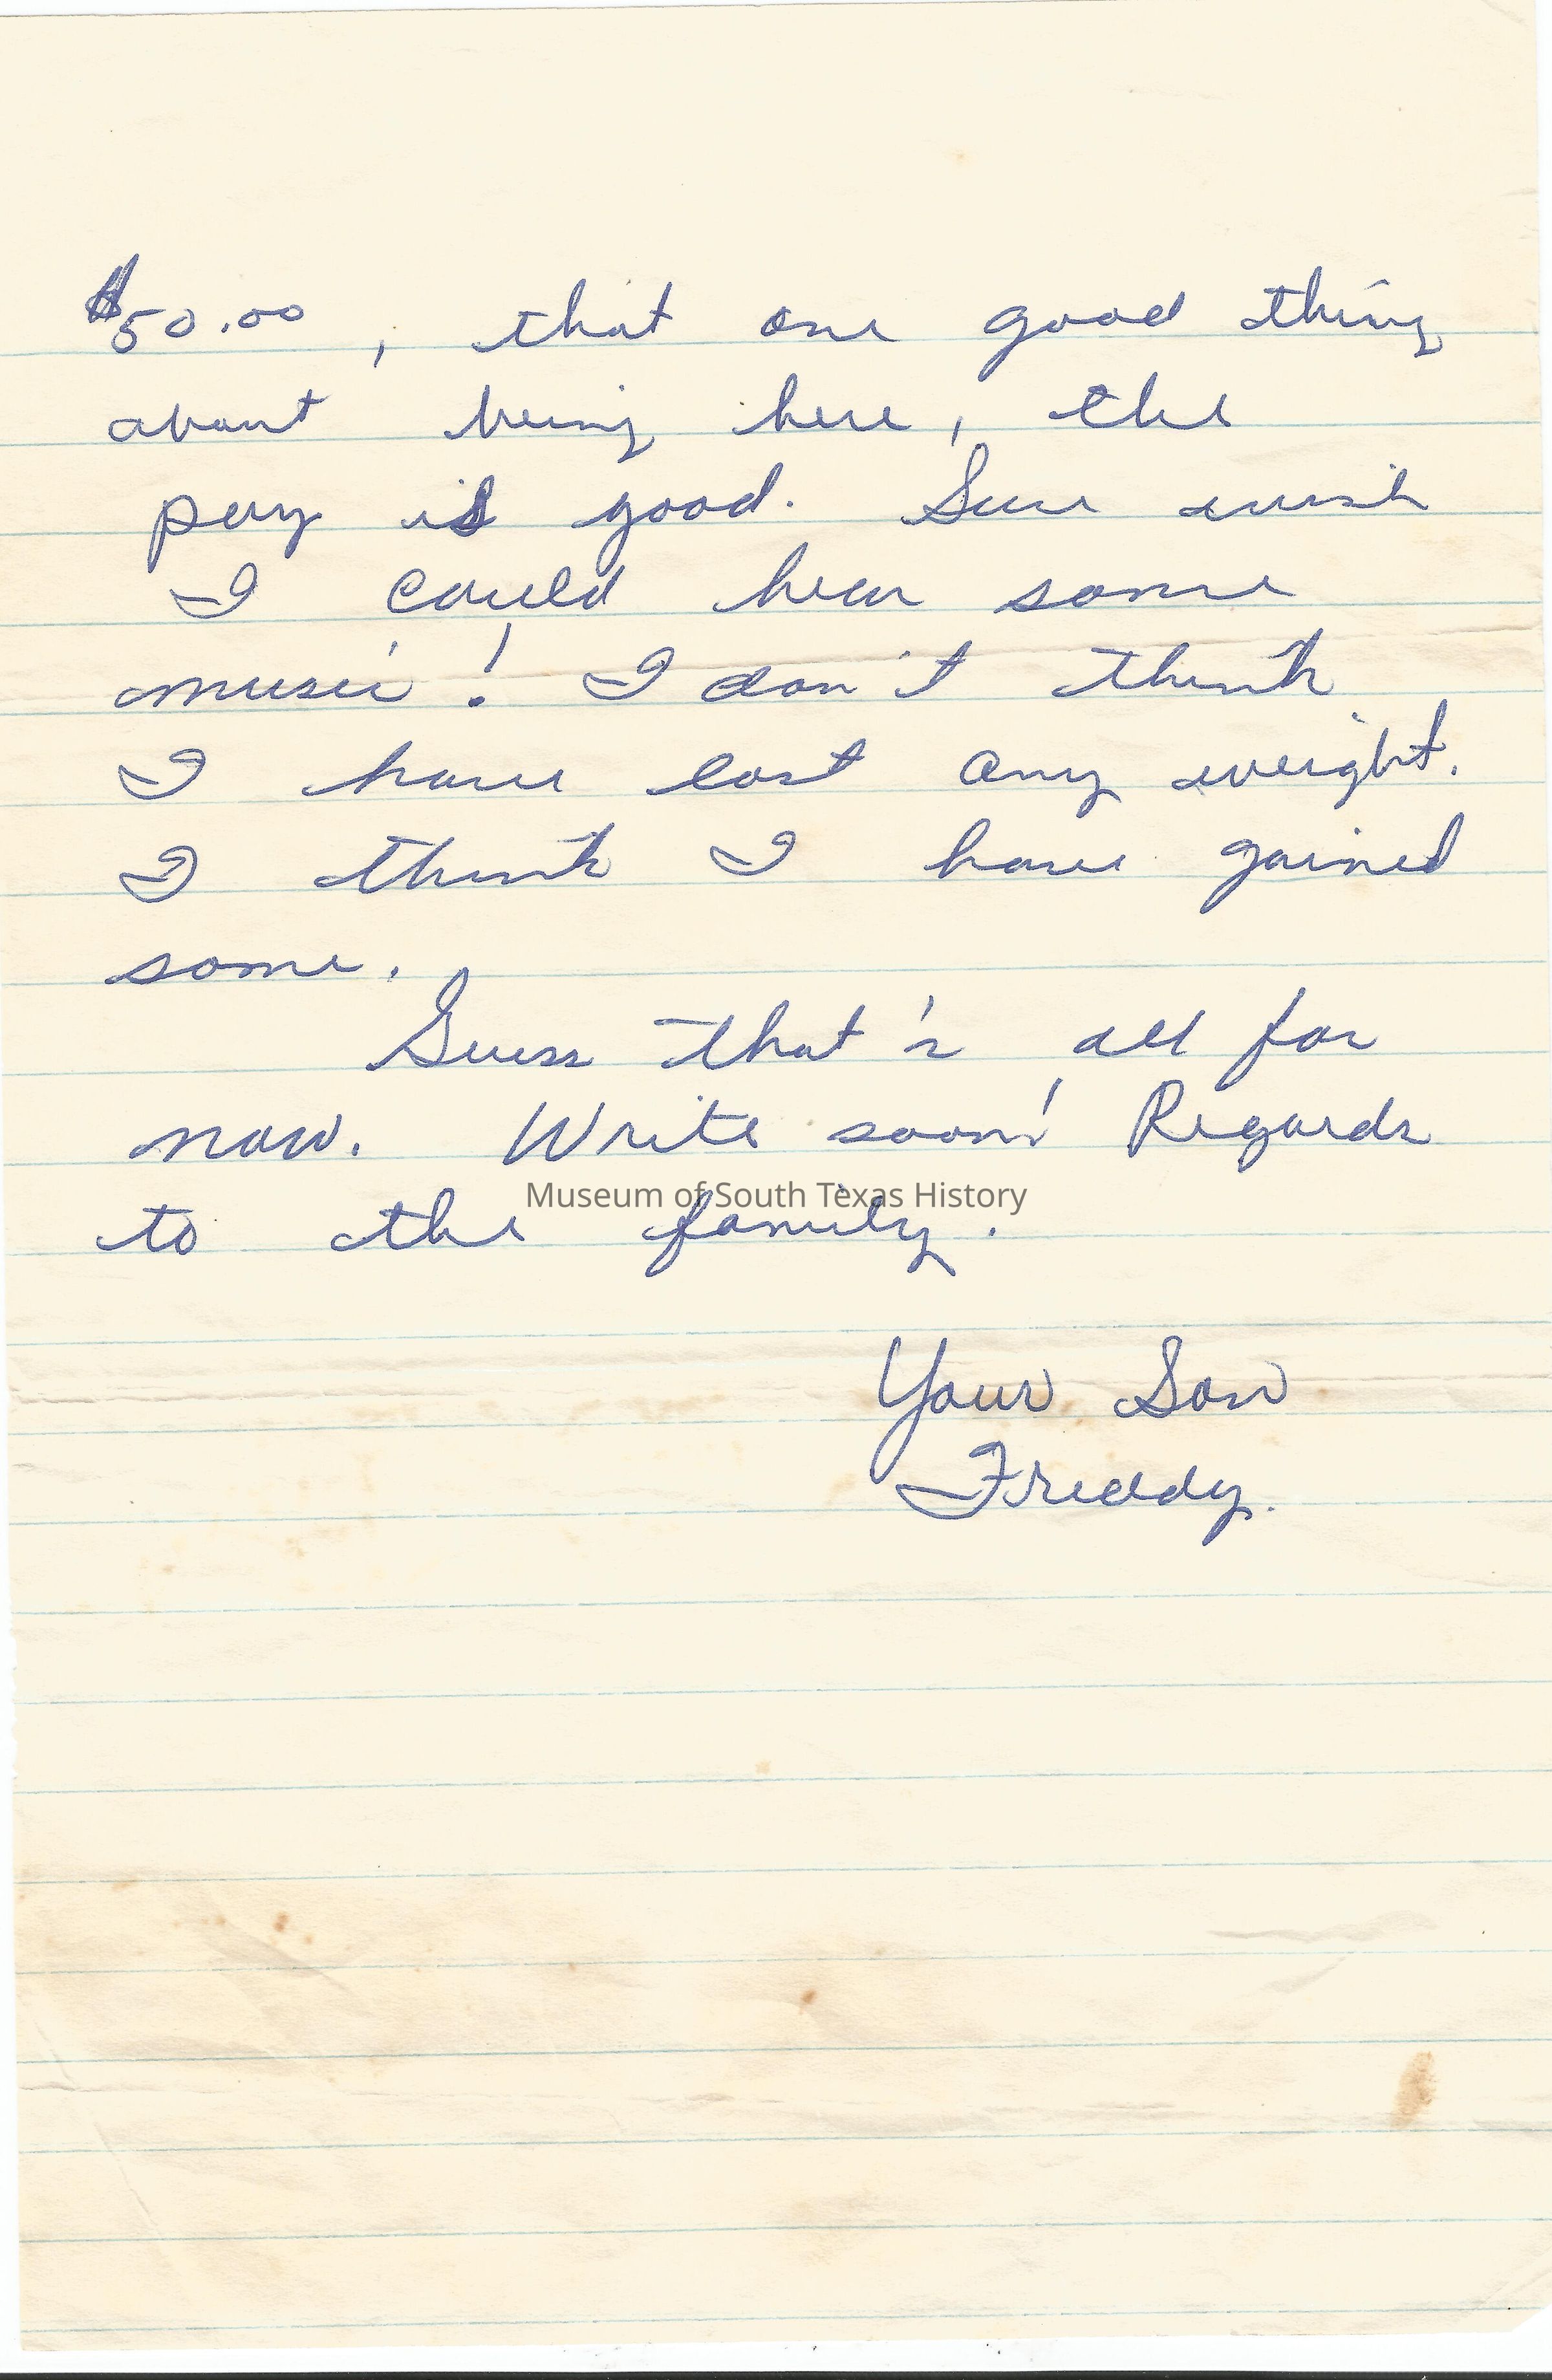 $50.00, that one good thing
about being here, the
pay is good. Sure wish
I could hear some
music! I don't think
I have lost any weight.
I think I have gained
some.
Guess that's all for
now. Write soon! Regards
to the family.
Museum of South Texas History
Your Son
Freddy.